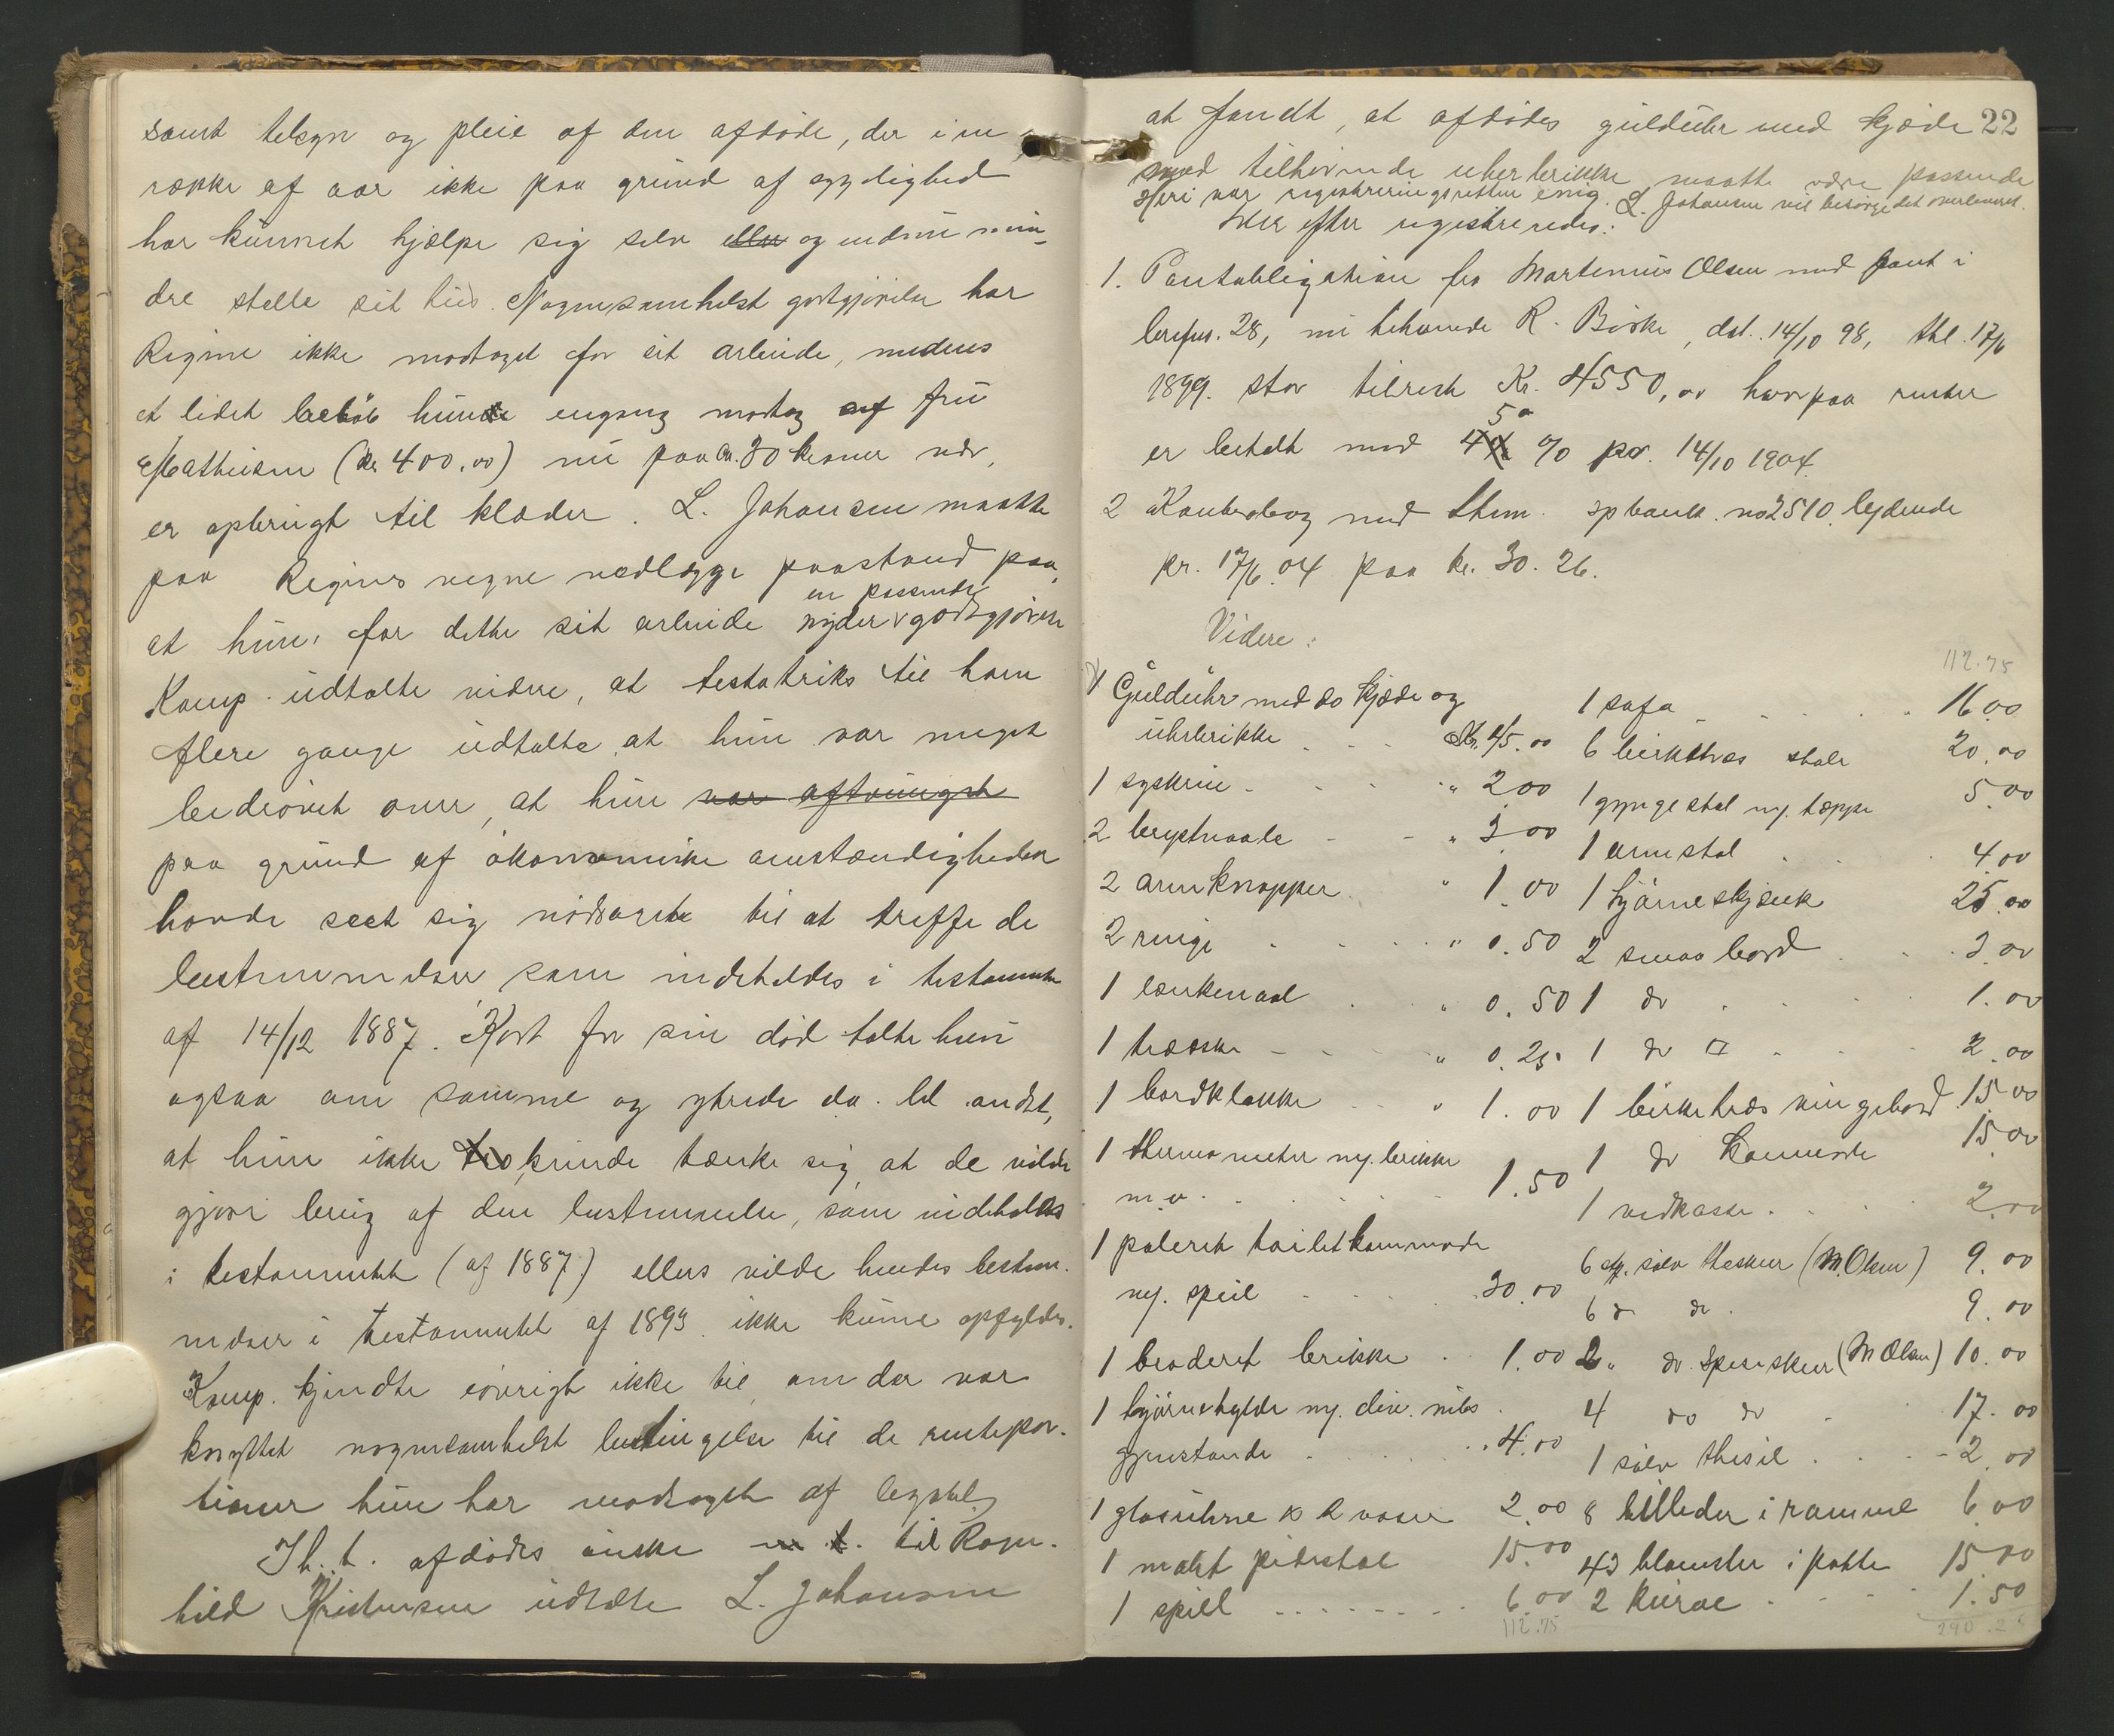 samt tilsyn og pleie af den afdøde, der i en
række af aar ikke paa grund af sygelighed
har kunnet hjælpe sig selv eller og endnu min-
dre stelle sit hus. Nogensomhelst godtgjørelse har
Regine ikke modtaget for sit arbeide, medens
et lidet beløb hun engang modtog af fru
Mathiesen (kr 400.00) nu paa ca. 30 kroner nær,
er opbrugt til klæder. L. Johansen maatte
paa Regines vegne nedlægge paastand paa,
at hun for dette sit arbeide nyder en passende godtgjørelse
Kamp. udtalte videre, at testatriks til ham
flere gange udtalte at hun var meget
bedrøvet over, at hun var aftvunget
paa grund af økonomiske omstændigheder
havde seet sig nødsaget til at treffe de
bestemmelser som indeholdes i testamente
af 14/12 1887. Kort før sin død talte hun
ogsaa om samme og ytrede da bl. andet,
at hun ikke kunde tænke sig, at de vilde
gjøre brug af den bestemmelse, som indeholdes
i testamentet (af 1887) ellers vilde hendes bestem-
melser i testamentet af 1893 ikke kunne opfyldes.
Kamp. kjendte iøvrigt ikke til, om der var
knyttet nogensomhelst betingelse til de rentepor-
tioner hun har modtaget af legatet.
Ih. t. afdødes ønske m. h. t. til Ragn-
hild Kristensen udtalte L. Johansen
22
at fandt, at afdødes gulduhr med kjæde
med tilhørende uhrbrikke maatte være passende
Heri var registreringsretten enig. L. Johansen vil besørge det overleveret.
Derefter registreredes:
1. Pantobligation fra Martinius Olsen med pant i
brefnr. 28, nu tilhørende R. Birke, dat. 14/10 98, thl. 17/6
1899. stor tilrest Kr. 4550,00 hvorpaa renter
er betalt med 5 % pr. 14/10 1904
2 Kontrabog med Sthm. spbank. no 2510. lydende
pr. 17/6.04 paa kr. 30.26.
Videre:
112.75
1 Gulduhr med do kjæde og
uhrbrikke . . . Kr. 45.00
1 syskrin . . . " 2 00
2 brystnaale - - " 3 00
2 armknapper . " 1.00
2 ringe . . . " 0.50
1 lænkenaal . . " 0.50
1 træske - - - " 0.25
1 bordklokke - - " 1.00
1 thermometer m/ brikke
m.v. . . . 1.50
1 poleret toiletkommode
m/. speil . . . 30.00
1 broderet brikke . . 1.00
1 hjørnehylde m/. div. nips
gjenstande . . . 4.00
1 glasuhrne & 2 vaser 2.00
1 malet pidestal 15.00
1 spill . . . . 6.00
112.75
1 sofa . . . . 16.00
6 birketræs stole 20.00
1 gyngestol m/. tæppe 5.00
1 armstol . . . 4.00
1 hjørneskjænk 25.00
2 smaa bord . . . 3.00
1 do . . . 1.00
1 do . . . 2.00
1 birketræs vingebord 15.00
1 do kommode 15.00
1 vedkasse . . . 2.00
6 stk. sølv theskeer (M. Olsen) 9.00
6 do do . 9.00
2 " do Spiseskeer (M Olsen) 10.00
4 do do . 17.00
1 sølv thesil . . . - 2.00
8 billeder i ramme 6.00
43 blomster i potte 15.00
2 kurve . - - 1.50
290.25